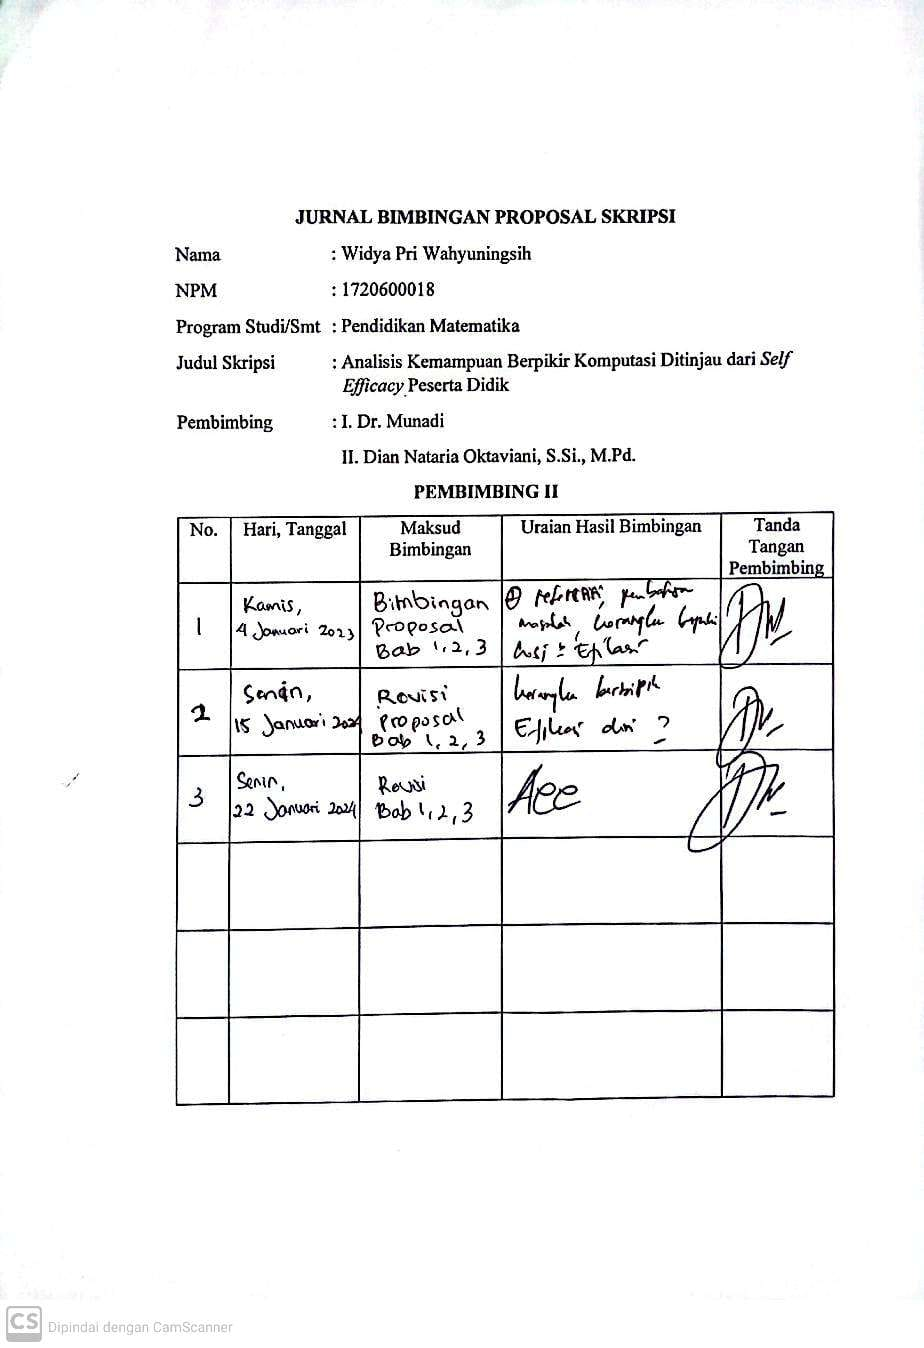 JURNAL BIMBINGAN PROPOSAL SKRIPSI
Nama : Widya Pri Wahyuningsih
NPM : 1720600018
Program Studi/Smt : Pendidikan Matematika
Judul Skripsi : Analisis Kemampuan Berpikir Komputasi Ditinjau dari Self
Efficacy Peserta Didik
Pembimbing : I. Dr. Munadi
II. Dian Nataria Oktaviani, S.Si., M.Pd.
PEMBIMBING II
No. Hari, Tanggal Maksud Bimbingan Uraian Hasil Bimbingan Tanda Tangan Pembimbing
1
Kamis,
4 Januari 2023
Bimbingan
Proposal
Bab 1, 2, 3
2
Senin,
15 Januari 2024
Revisi
Proposal
Bab 1, 2, 3
3
Senin,
22 Januari 2024
Revisi
Bab 1, 2, 3
Acc
CS Dipindai dengan CamScanner